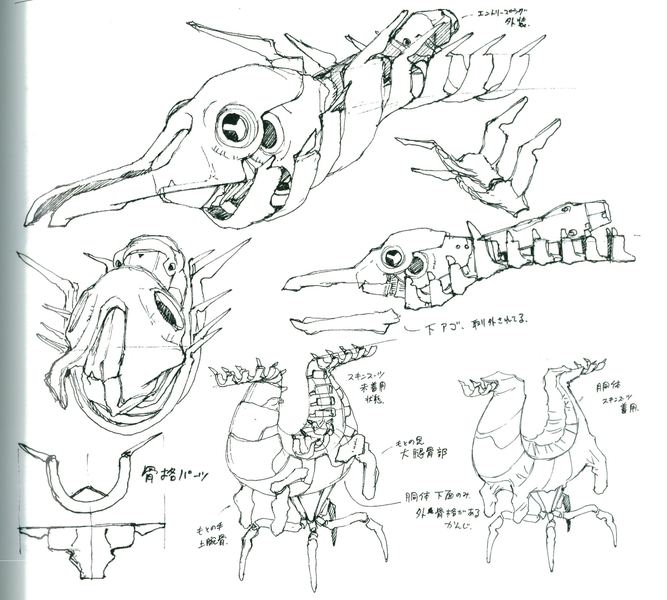 エントリープラグ
外装.
下アゴ、取り外されてる.
スキンスーツ
未着用
状態.
胴体
スキンスーツ
着用.
もとの足
大腿骨部
骨格パーツ
胴体 下面のみ
外骨格がある
かんじ.
もとの手
上腕骨.